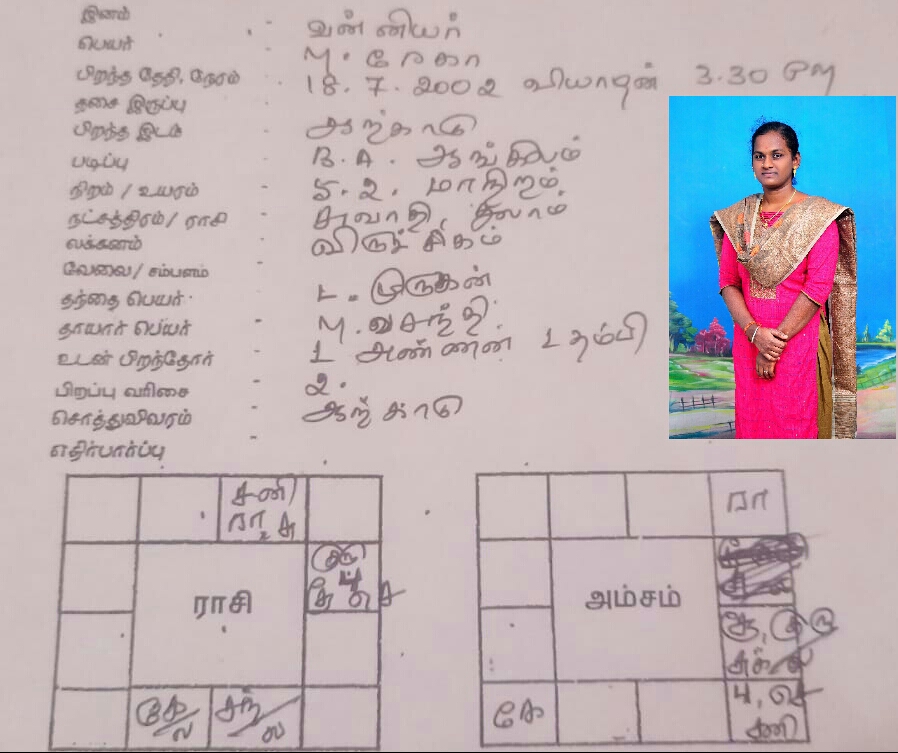 இனம் - வன்னியர்
பெயர் - M. ரேகா
பிறந்த தேதி, நேரம் - 18.7.2002 வியாழன் 3.30 PM
தசை இருப்பு
பிறந்த இடம் - ஆற்காடு
படிப்பு - B.A. ஆங்கிலம்
நிறம் / உயரம் - 5.2. மாநிறம்
நட்சத்திரம் / ராசி - சுவாதி, துலாம்
லக்கனம் - விருச்சிகம்
வேலை / சம்பளம் -
தந்தை பெயர் - L. முருகன்
தாயார் பெயர் - M. வசந்தி
உடன் பிறந்தோர் - 1 அண்ணன் 1 தம்பி
பிறப்பு வரிசை - 2.
சொத்துவிவரம் - ஆற்காடு
எதிர்பார்ப்பு -
சனி
ரா, சூ
குரு
பு
செ
ராசி
கே/ல
சந்/
ரா
அம்சம்
குரு
கே
பு, செ
சனி